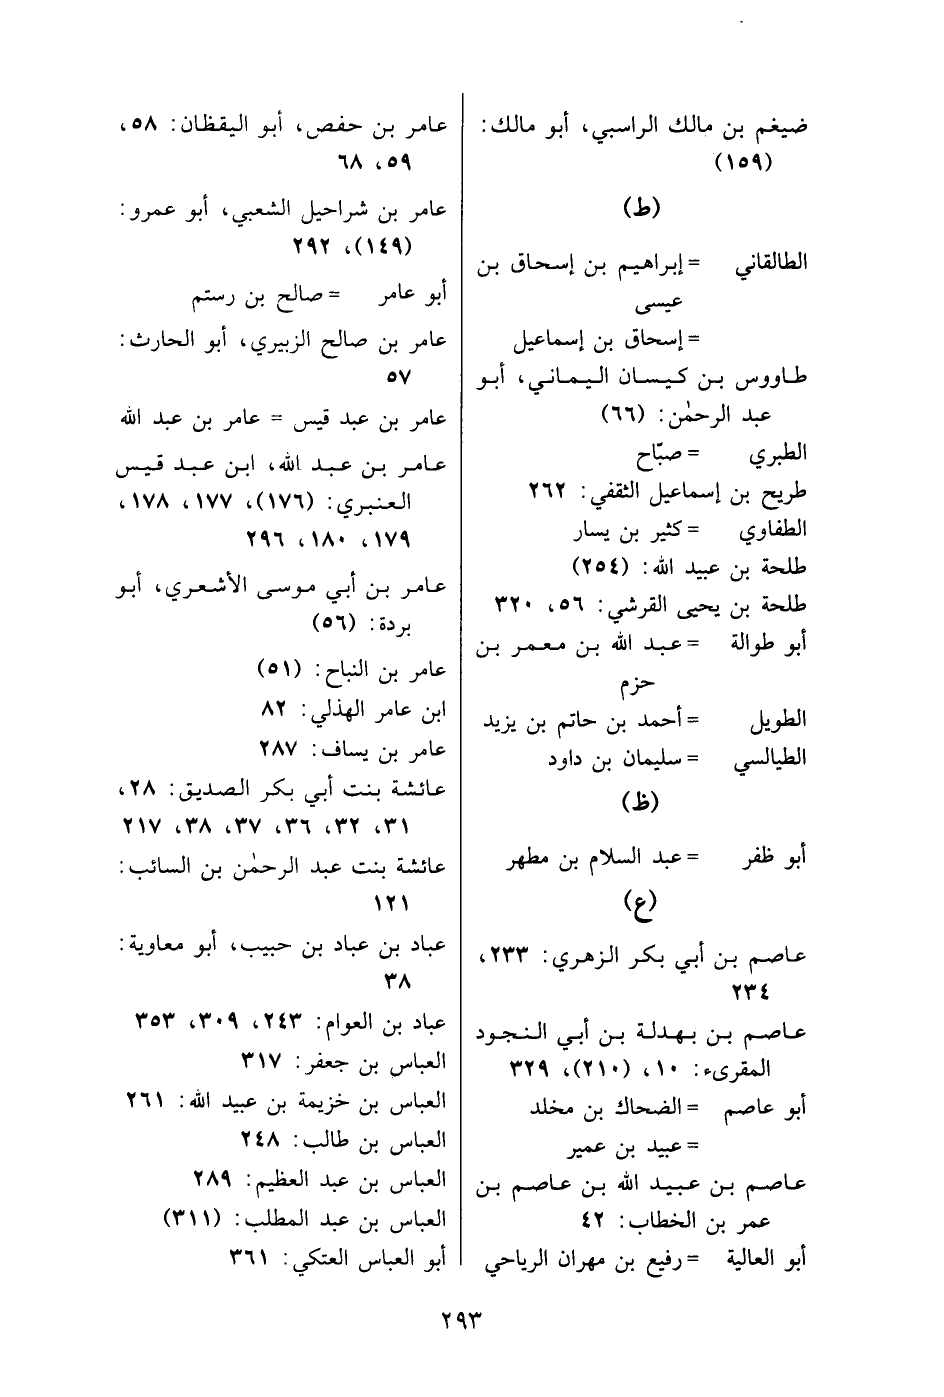 ضيغم بن مالك الراسبي، أبو مالك:
(١٥٩)
(ط)
الطالقاني = إبراهيم بن إسحاق بن
عيسى
= إسحاق بن إسماعيل
طاووس بن كيسان اليماني، أبو
عبد الرحمٰن: (٦٦)
الطبري = صبّاح
طريح بن إسماعيل الثقفي: ٢٦٢
الطفاوي = كثير بن يسار
طلحة بن عبيد الله: (٢٥٤)
طلحة بن يحيى القرشي: ٥٦، ٣٢٠
أبو طوالة = عبد الله بن معمر بن
حزم
الطويل = أحمد بن حاتم بن يزيد
الطيالسي = سليمان بن داود
(ظ)
أبو ظفر = عبد السلام بن مطهر
(ع)
عاصم بن أبي بكر الزهري: ٢٣٣،
٢٣٤
عاصم بن بهدلة بن أبي النجود
المقرىء: ١٠، (٢١٠)، ٣٢٩
أبو عاصم = الضحاك بن مخلد
= عبيد بن عمير
عاصم بن عبيد الله بن عاصم بن
عمر بن الخطاب: ٤٢
أبو العالية = رفيع بن مهران الرياحي
عامر بن حفص، أبو اليقظان: ٥٨،
٥٩، ٦٨
عامر بن شراحيل الشعبي، أبو عمرو:
(١٤٩)، ٢٩٢
أبو عامر = صالح بن رستم
عامر بن صالح الزبيري، أبو الحارث:
٥٧
عامر بن عبد قيس = عامر بن عبد الله
عامر بن عبد الله، ابن عبد قيس
العنبري: (١٧٦)، ١٧٧، ١٧٨،
١٧٩، ١٨٠، ٢٩٦
عامر بن أبي موسى الأشعري، أبو
بردة: (٥٦)
عامر بن النباح: (٥١)
ابن عامر الهذلي: ٨٢
عامر بن يساف: ٢٨٧
عائشة بنت أبي بكر الصديق: ٢٨،
٣١، ٣٢، ٣٦، ٣٧، ٣٨، ٢١٧
عائشة بنت عبد الرحمٰن بن السائب:
١٢١
عباد بن عباد بن حبيب، أبو معاوية:
٣٨
عباد بن العوام: ٢٤٣، ٣٠٩، ٣٥٣
العباس بن جعفر: ٣١٧
العباس بن خزيمة بن عبيد الله: ٢٦١
العباس بن طالب: ٢٤٨
العباس بن عبد العظيم: ٢٨٩
العباس بن عبد المطلب: (٣١١)
أبو العباس العتكي: ٣٦١
٢٩٣